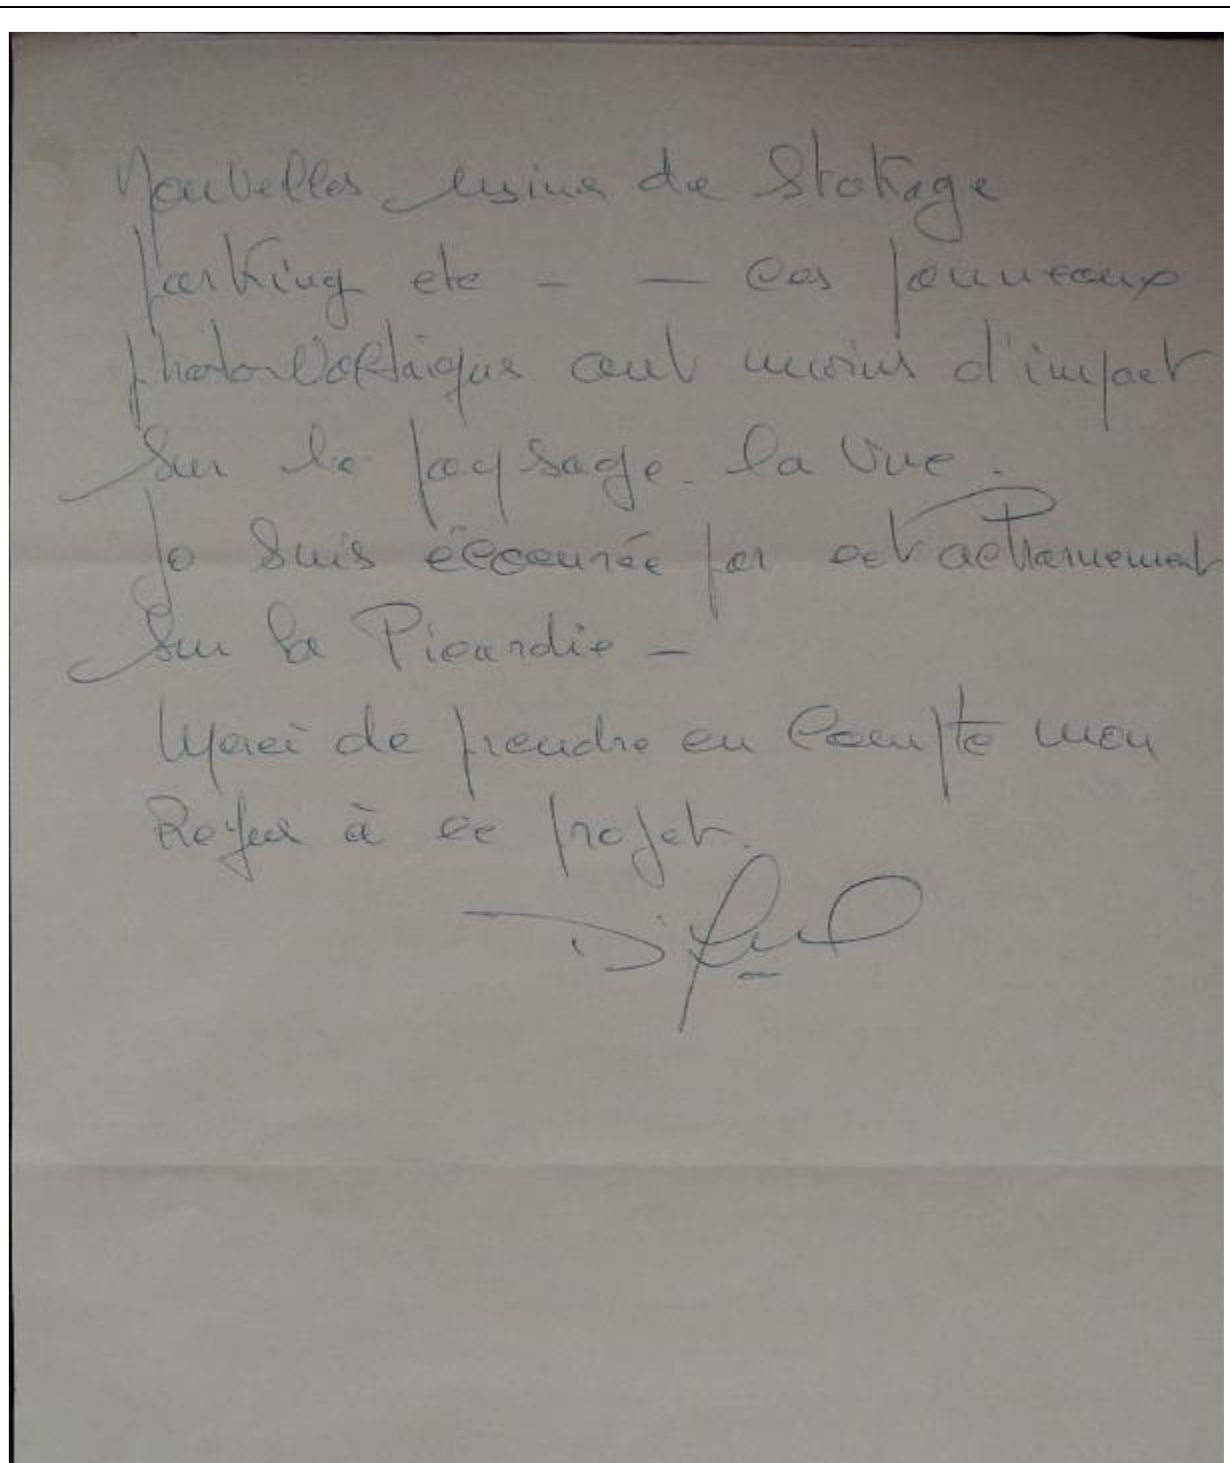 Nouvelles usine de Stokage
Parking etc - — Les panneaux
photovoltaïques ont moins d'impact
Sur le paysage - la Vue.
Je Suis écoeurée par cet acharnement
Sur la Picardie -
Merci de prendre en Compte mon
Refus à ce projet.